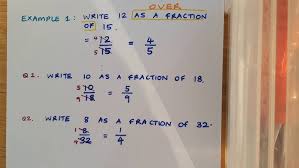 OVER
EXAMPLE 1: WRITE 12 AS A FRACTION
OF 15.
= 4 12 / 5 15 = 4/5
Q1. WRITE 10 AS A FRACTION OF 18.
5 10 / 9 18 = 5/9
Q2. WRITE 8 AS A FRACTION OF 32.
1 8 / 4 32 = 1/4